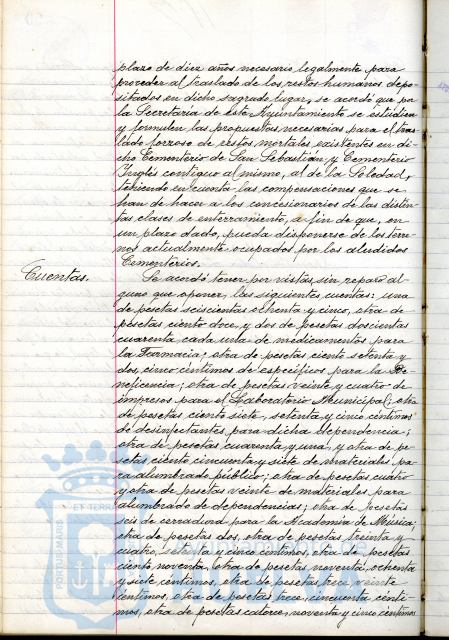 plazo de diez años necesario legalmente para
proceder al traslado de los restos humanos depo-
sitados en dicho sagrado lugar, se acordó que por
la Secretaría de éste Ayuntamiento se estudien
y formulen las propuestas necesarias para el tras-
lado forzoso de restos mortales existentes en di-
cho Cementerio de San Sebastián y Cementerio
Inglés contiguo al mismo, al de la Soledad,
teniendo en cuenta las compensaciones que se
han de hacer a los concesionarios de las distin-
tas clases de enterramiento, a fin de que, en
un plazo dado, pueda disponerse de los terre-
nos actualmente ocupados por los aludidos
Cementerios.
Cuentas. Se acordó tener por vistas, sin reparo al-
guno que oponer, las siguientes cuentas: una
de pesetas seiscientas ochenta y cinco, otra de
pesetas ciento doce, y dos de pesetas doscientas
cuarenta cada una de medicamentos para
la Farmacia; otra de pesetas ciento setenta y
dos, cinco céntimos de específicos para la Be-
neficencia; otra de pesetas veinte y cuatro de
impresos para el Laboratorio Municipal; otra
de pesetas ciento siete, setenta y cinco céntimos
de desinfectantes para dicha dependencia;
otra de pesetas cuarenta y una, y otra de pe-
setas ciento cincuenta y siete de materiales pa-
ra alumbrado público; otra de pesetas cuatro
y otra de pesetas veinte de materiales para
alumbrado de dependencias; otra de pesetas
seis de cerradura para la Academia de Música;
otra de pesetas dos, otra de pesetas treinta y
cuatro, setenta y cinco céntimos, otra de pesetas
ciento noventa, otra de pesetas noventa, ochenta
y siete céntimos, otra de pesetas trece, veinte
céntimos, otra de pesetas trece, cincuenta cénti-
mos, otra de pesetas catorce, noventa y cinco céntimos